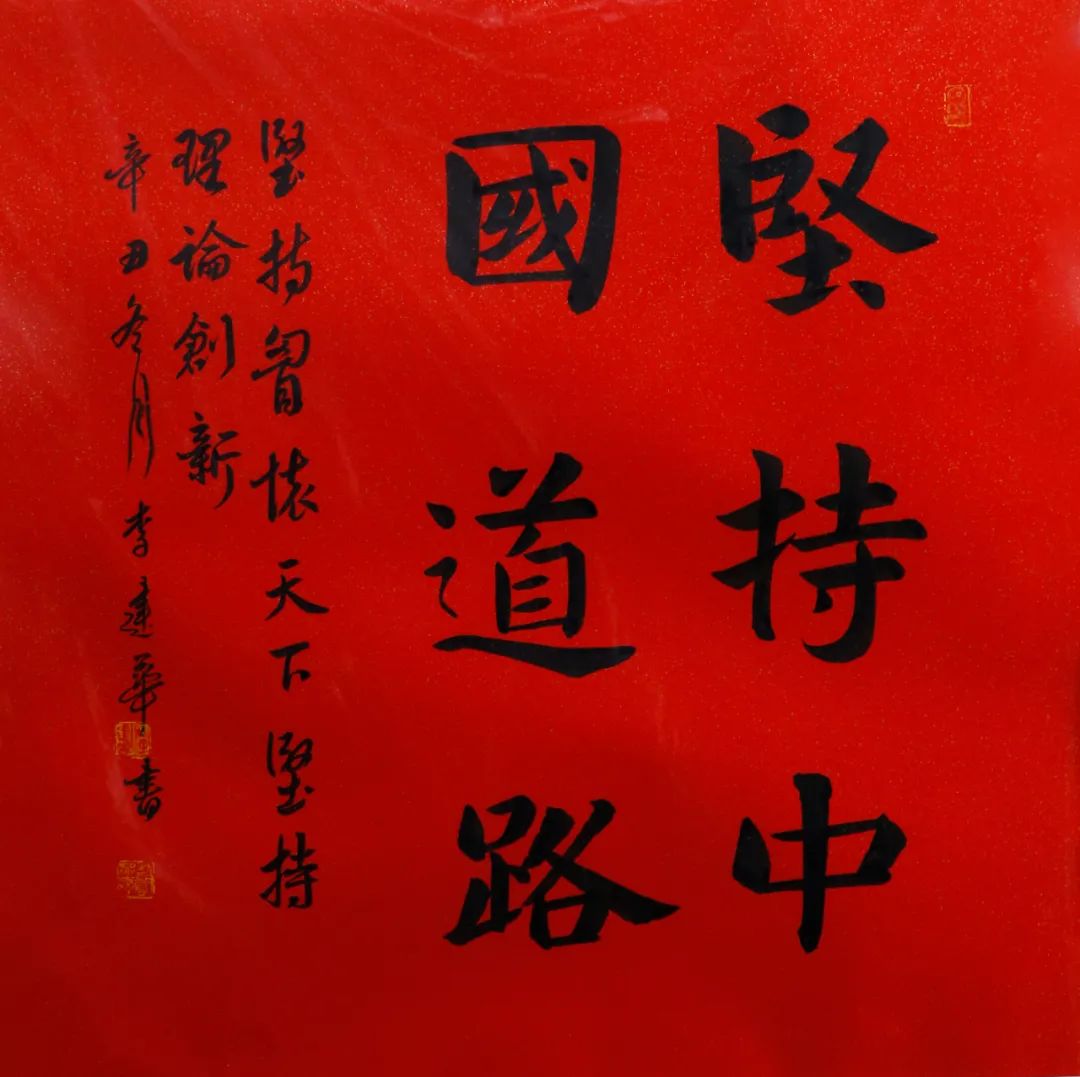 堅持中
國道路
堅持胷懷天下堅持
理論創新
辛丑冬月李建華書